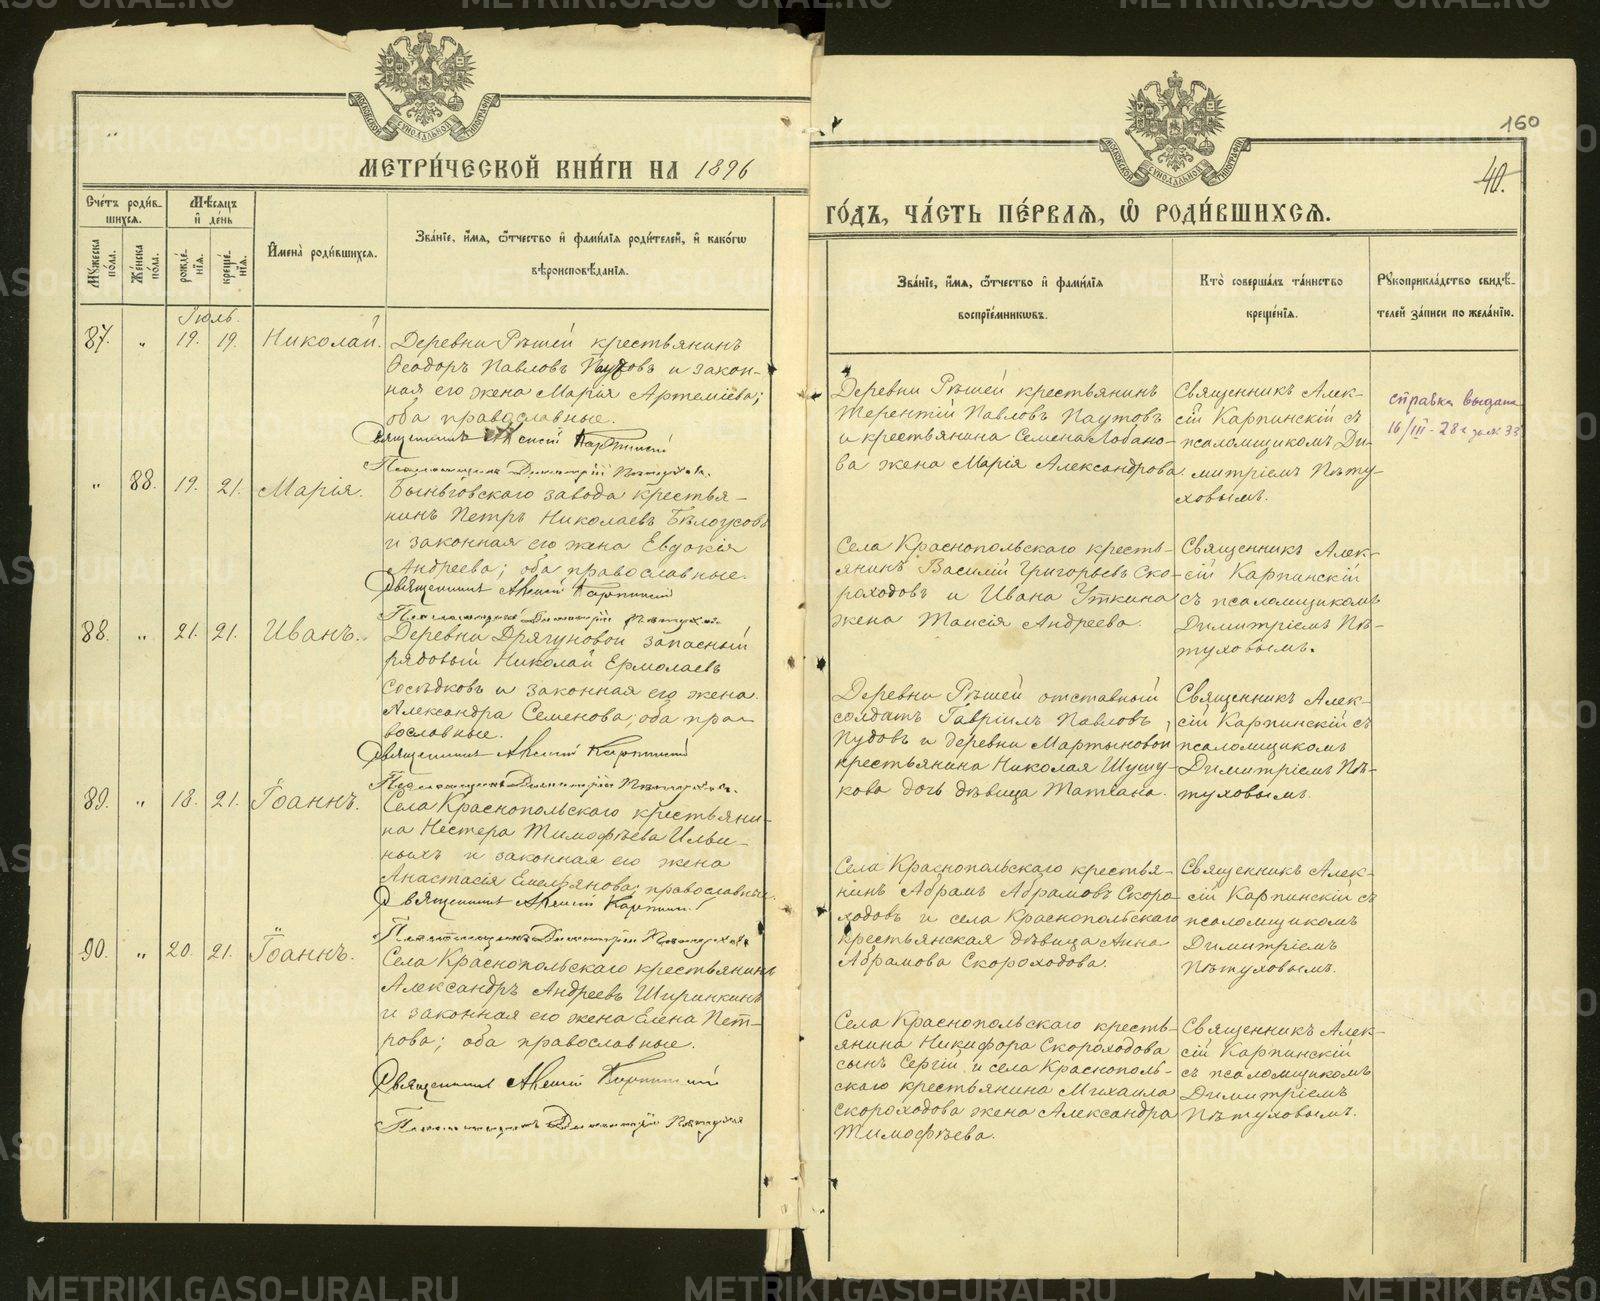 МЕТРИ́ЧЕСКОЙ КНИ́ГИ НА 1896
Сче́тъ роди́в-
шихся.
Мѣ́сяцъ
и҆ де́нь
Мꙋ́жеска
по́ла.
Же́нска
по́ла.
рожде́-
нїя.
креще́-
нїя.
И҆мена̀ роди́вшихся.
Зва́нїе, и҆́мя, ѻ҆́тчество и҆ фами́лїя роди́телей, и҆ како́гѡ
вѣроисповѣ́данїя.
Іюль.
87. " 19. 19. Николай.
Деревни Рѣшей крестьянинъ
Ѳеодоръ Павловъ Паутовъ и закон-
ная его жена Марія Артеміева;
оба православные.
Священникъ Алексій Карпинскій
Псаломщикъ Димитрій Пѣтуховъ.
" 88. 19. 21. Марія.
Быньговскаго завода крестья-
нинъ Петръ Николаевъ Бѣлоусовъ
и законная его жена Евдокія
Андреева; оба православные.
Священникъ Алексій Карпинскій
Псаломщикъ Димитрій Пѣтуховъ.
88. " 21. 21. Иванъ.
Деревни Дрягуновой запасный
рядовый Николай Ермолаевъ
Сосѣдковъ и законная его жена
Александра Семенова; оба пра-
вославные.
Священникъ Алексій Карпинскій
Псаломщикъ Димитрій Пѣтуховъ.
89. " 18. 21. Іоаннъ.
Села Краснопольскаго крестьяни-
на Нестера Тимофѣева Ильи-
ныхъ и законная его жена
Анастасія Емельянова; православные.
Священникъ Алексій Карпинскій
Псаломщикъ Димитрій Пѣтуховъ.
90. " 20. 21. Іоаннъ.
Села Краснопольскаго крестьянинъ
Александръ Андреевъ Ширинкинъ
и законная его жена Елена Пет-
рова; оба православные.
Священникъ Алексій Карпинскій
Псаломщикъ Димитрій Пѣтуховъ
160
40.
ГО́ДЪ, ЧА́СТЬ ПЕ́РВАЯ, Ѡ҆ РОДИ́ВШИХСЯ.
Зва́нїе, и҆́мя, ѻ҆́тчество и҆ фами́лїя
воспрїе́мникѡвъ.
Кто̀ соверша́лъ та́инство
креще́нїя.
Рꙋкоприкла́дство свидѣ́-
телей за́писи по жела́нїю.
Деревни Рѣшей крестьянинъ
Терентій Павловъ Паутовъ
и крестьянина Семена Лобано-
ва жена Марія Александрова.
Священникъ Алек-
сій Карпинскій съ
псаломщикомъ Ди-
митріемъ Пѣту-
ховымъ.
справка выдана
16/III-28 г за № 33
Села Краснопольскаго кресть-
янинъ Василій Григорьевъ Ско-
роходовъ и Ивана Уткина
жена Таисія Андреева.
Священникъ Алек-
сій Карпинскій
съ псаломщикомъ
Димитріемъ Пѣ-
туховымъ.
Деревни Рѣшей отставный
солдатъ Гавріилъ Павловъ
Пудовъ и деревни Мартыновой
крестьянина Николая Шушу-
кова дочь дѣвица Татіана.
Священникъ Алек-
сій Карпинскій съ
псаломщикомъ
Димитріемъ Пѣ-
туховымъ.
Села Краснопольскаго крестья-
нинъ Абрамъ Абрамовъ Скоро-
ходовъ и села Краснопольскаго
крестьянская дѣвица Анна
Абрамова Скороходова.
Священникъ Алек-
сій Карпинскій съ
псаломщикомъ
Димитріемъ
Пѣтуховымъ.
Села Краснопольскаго кресть-
янина Никифора Скороходова
сынъ Сергій и села Краснополь-
скаго крестьянина Михаила
Скороходова жена Александра
Тимофѣева.
Священникъ Алек-
сій Карпинскій
съ псаломщикомъ
Димитріемъ
Пѣтуховымъ.
METRIKI.GASO-URAL.RU